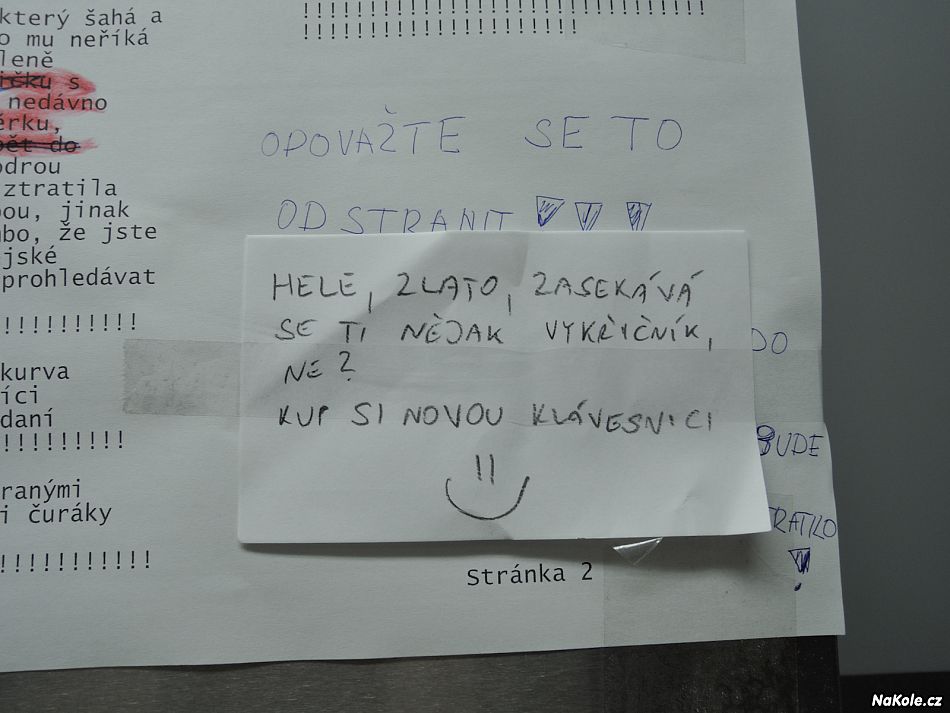 který šahá a
o mu neříká
leně
ičku s
nedávno
érku,
pět do
odrou
ztratila
bou, jinak
mbo, že jste
jské
prohledávat
!!!!!!!!!!!!
kurva
íci
daní
!!!!!!!!!!!
ranými
i čuráky
!!!!!!!!!!!!!
!!!!!!!!!!!!!!!!!!!!!!!!!!!!!!!!!!
!!!!!!!!!!!!!!!!!!!!!!!
OPOVAŽTE SE TO
ODSTRANIT !!!
HELE, ZLATO, ZASEKÁVÁ
SE TI NĚJAK VYKŘIČNÍK,
NE?
KUP SI NOVOU KLÁVESNICI
DO
BUDE
TRATILO
!
Stránka 2
NaKole.cz